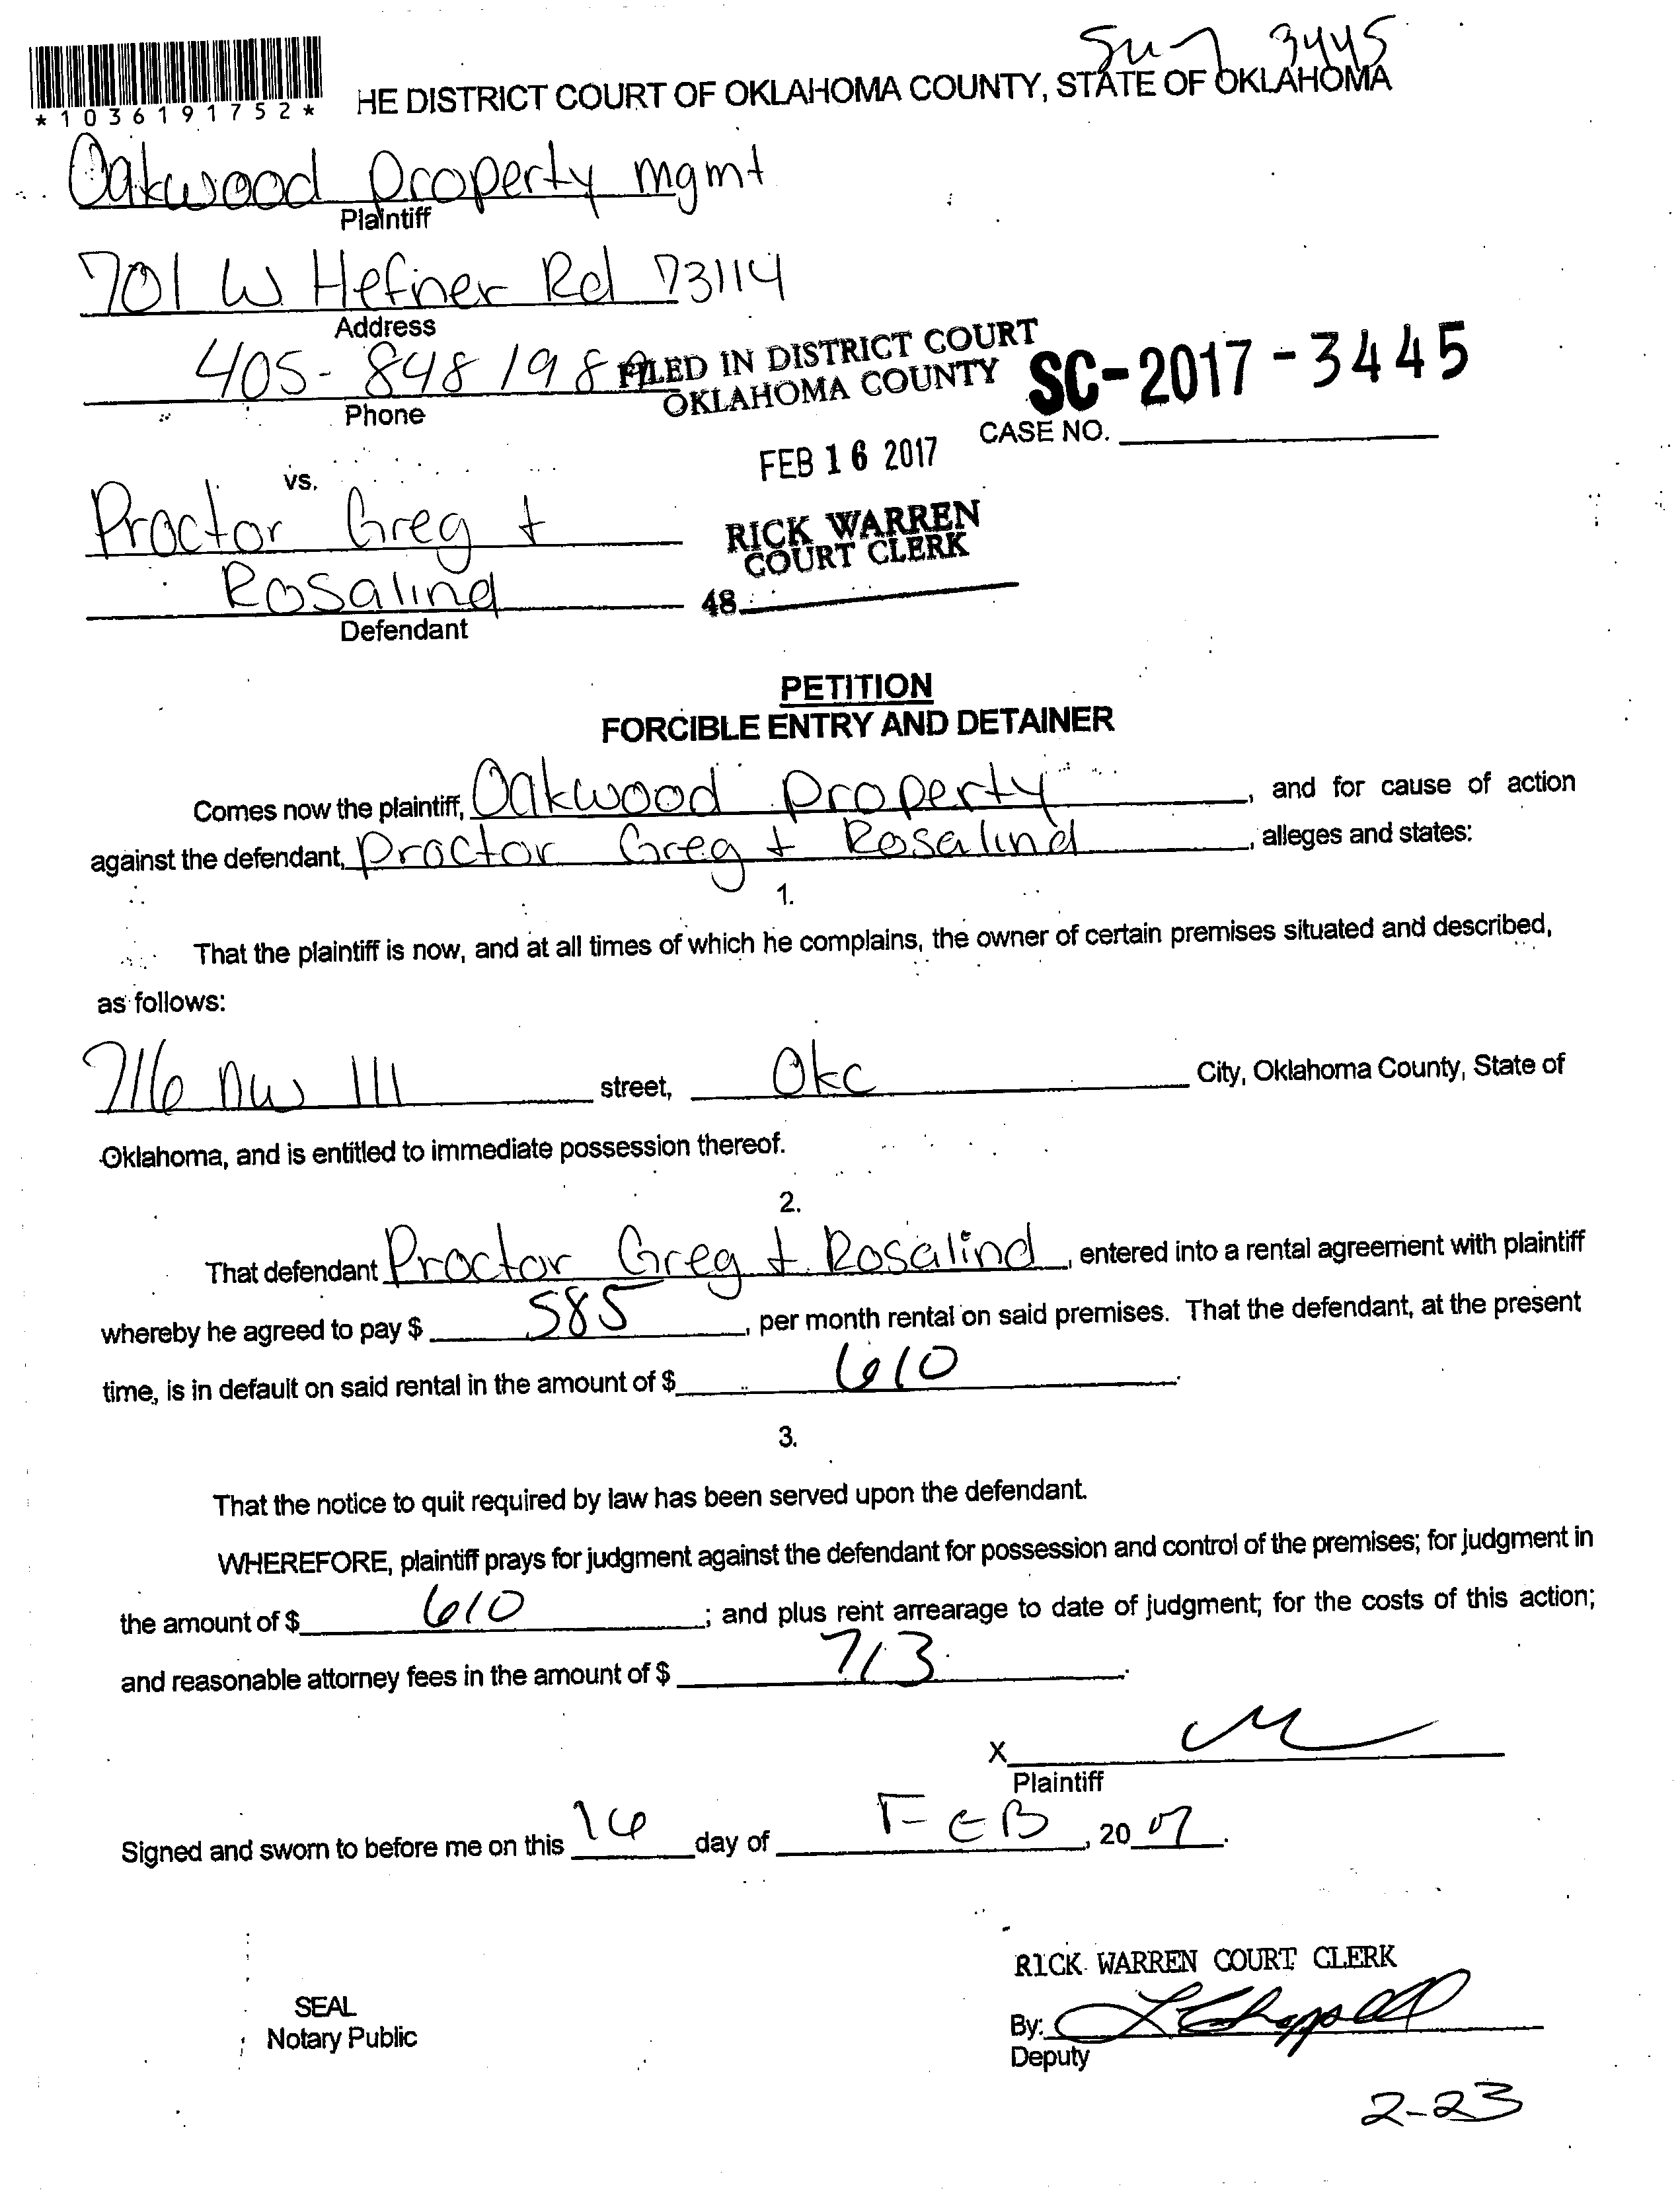 3445
*1036191752*
HE DISTRICT COURT OF OKLAHOMA COUNTY, STATE OF OKLAHOMA
Oakwood Property mgmt
Plaintiff
701 W Hefner Rd 73114
Address
405-848 198
Phone
FILED IN DISTRICT COURT
OKLAHOMA COUNTY
SC-2017-3445
CASE NO.
FEB 16 2017
vs.
RICK WARREN
COURT CLERK
48
Proctor Greg +
Rosalind
Defendant
PETITION
FORCIBLE ENTRY AND DETAINER
Comes now the plaintiff, Oakwood Property, and for cause of action
against the defendant, Proctor Greg + Rosalind, alleges and states:
1.
That the plaintiff is now, and at all times of which he complains, the owner of certain premises situated and described,
as follows:
716 NW 111 street, Okc City, Oklahoma County, State of
Oklahoma, and is entitled to immediate possession thereof.
2.
That defendant Proctor Greg + Rosalind, entered into a rental agreement with plaintiff
whereby he agreed to pay $ 585, per month rental on said premises. That the defendant, at the present
time, is in default on said rental in the amount of $ 610.
3.
That the notice to quit required by law has been served upon the defendant.
WHEREFORE, plaintiff prays for judgment against the defendant for possession and control of the premises; for judgment in
the amount of $ 610; and plus rent arrearage to date of judgment; for the costs of this action;
and reasonable attorney fees in the amount of $ 713.
X
Plaintiff
Signed and sworn to before me on this 16 day of FEB, 20 07.
RICK WARREN COURT CLERK
SEAL
Notary Public
By: L Chappell
Deputy
2-23